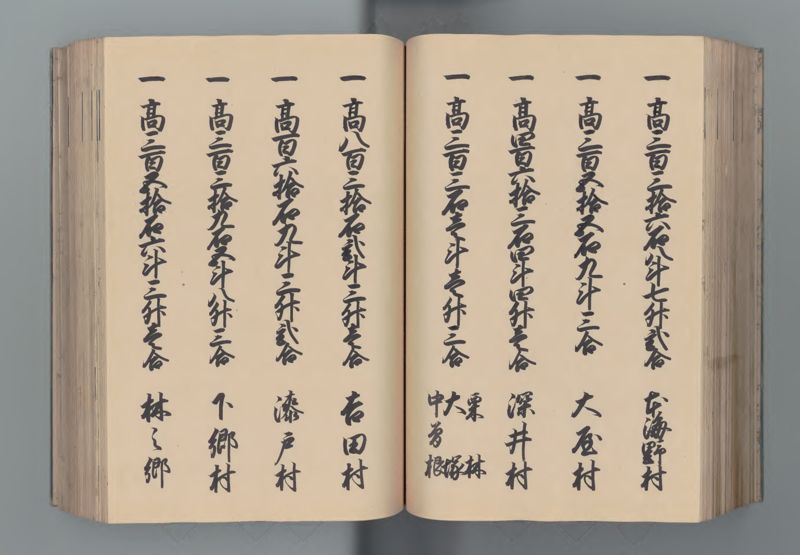 一 高三百三拾六石八斗七升弐合 本海野村
一 高三百五拾五石九斗三合 大屋村
一 高四百六拾三石四斗四升壱合 深井村
一 高三百三石壱斗壱升三合 栗林 大塚 中曽根
一 高八百三拾石弐斗三升壱合 吉田村
一 高百六拾石九斗三升弐合 漆戸村
一 高三百三拾九石五斗八升三合 下郷村
一 高三百五拾石六斗三升壱合 林之郷